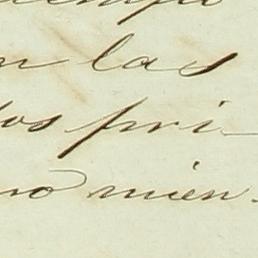 n las
os pri-
no mien-